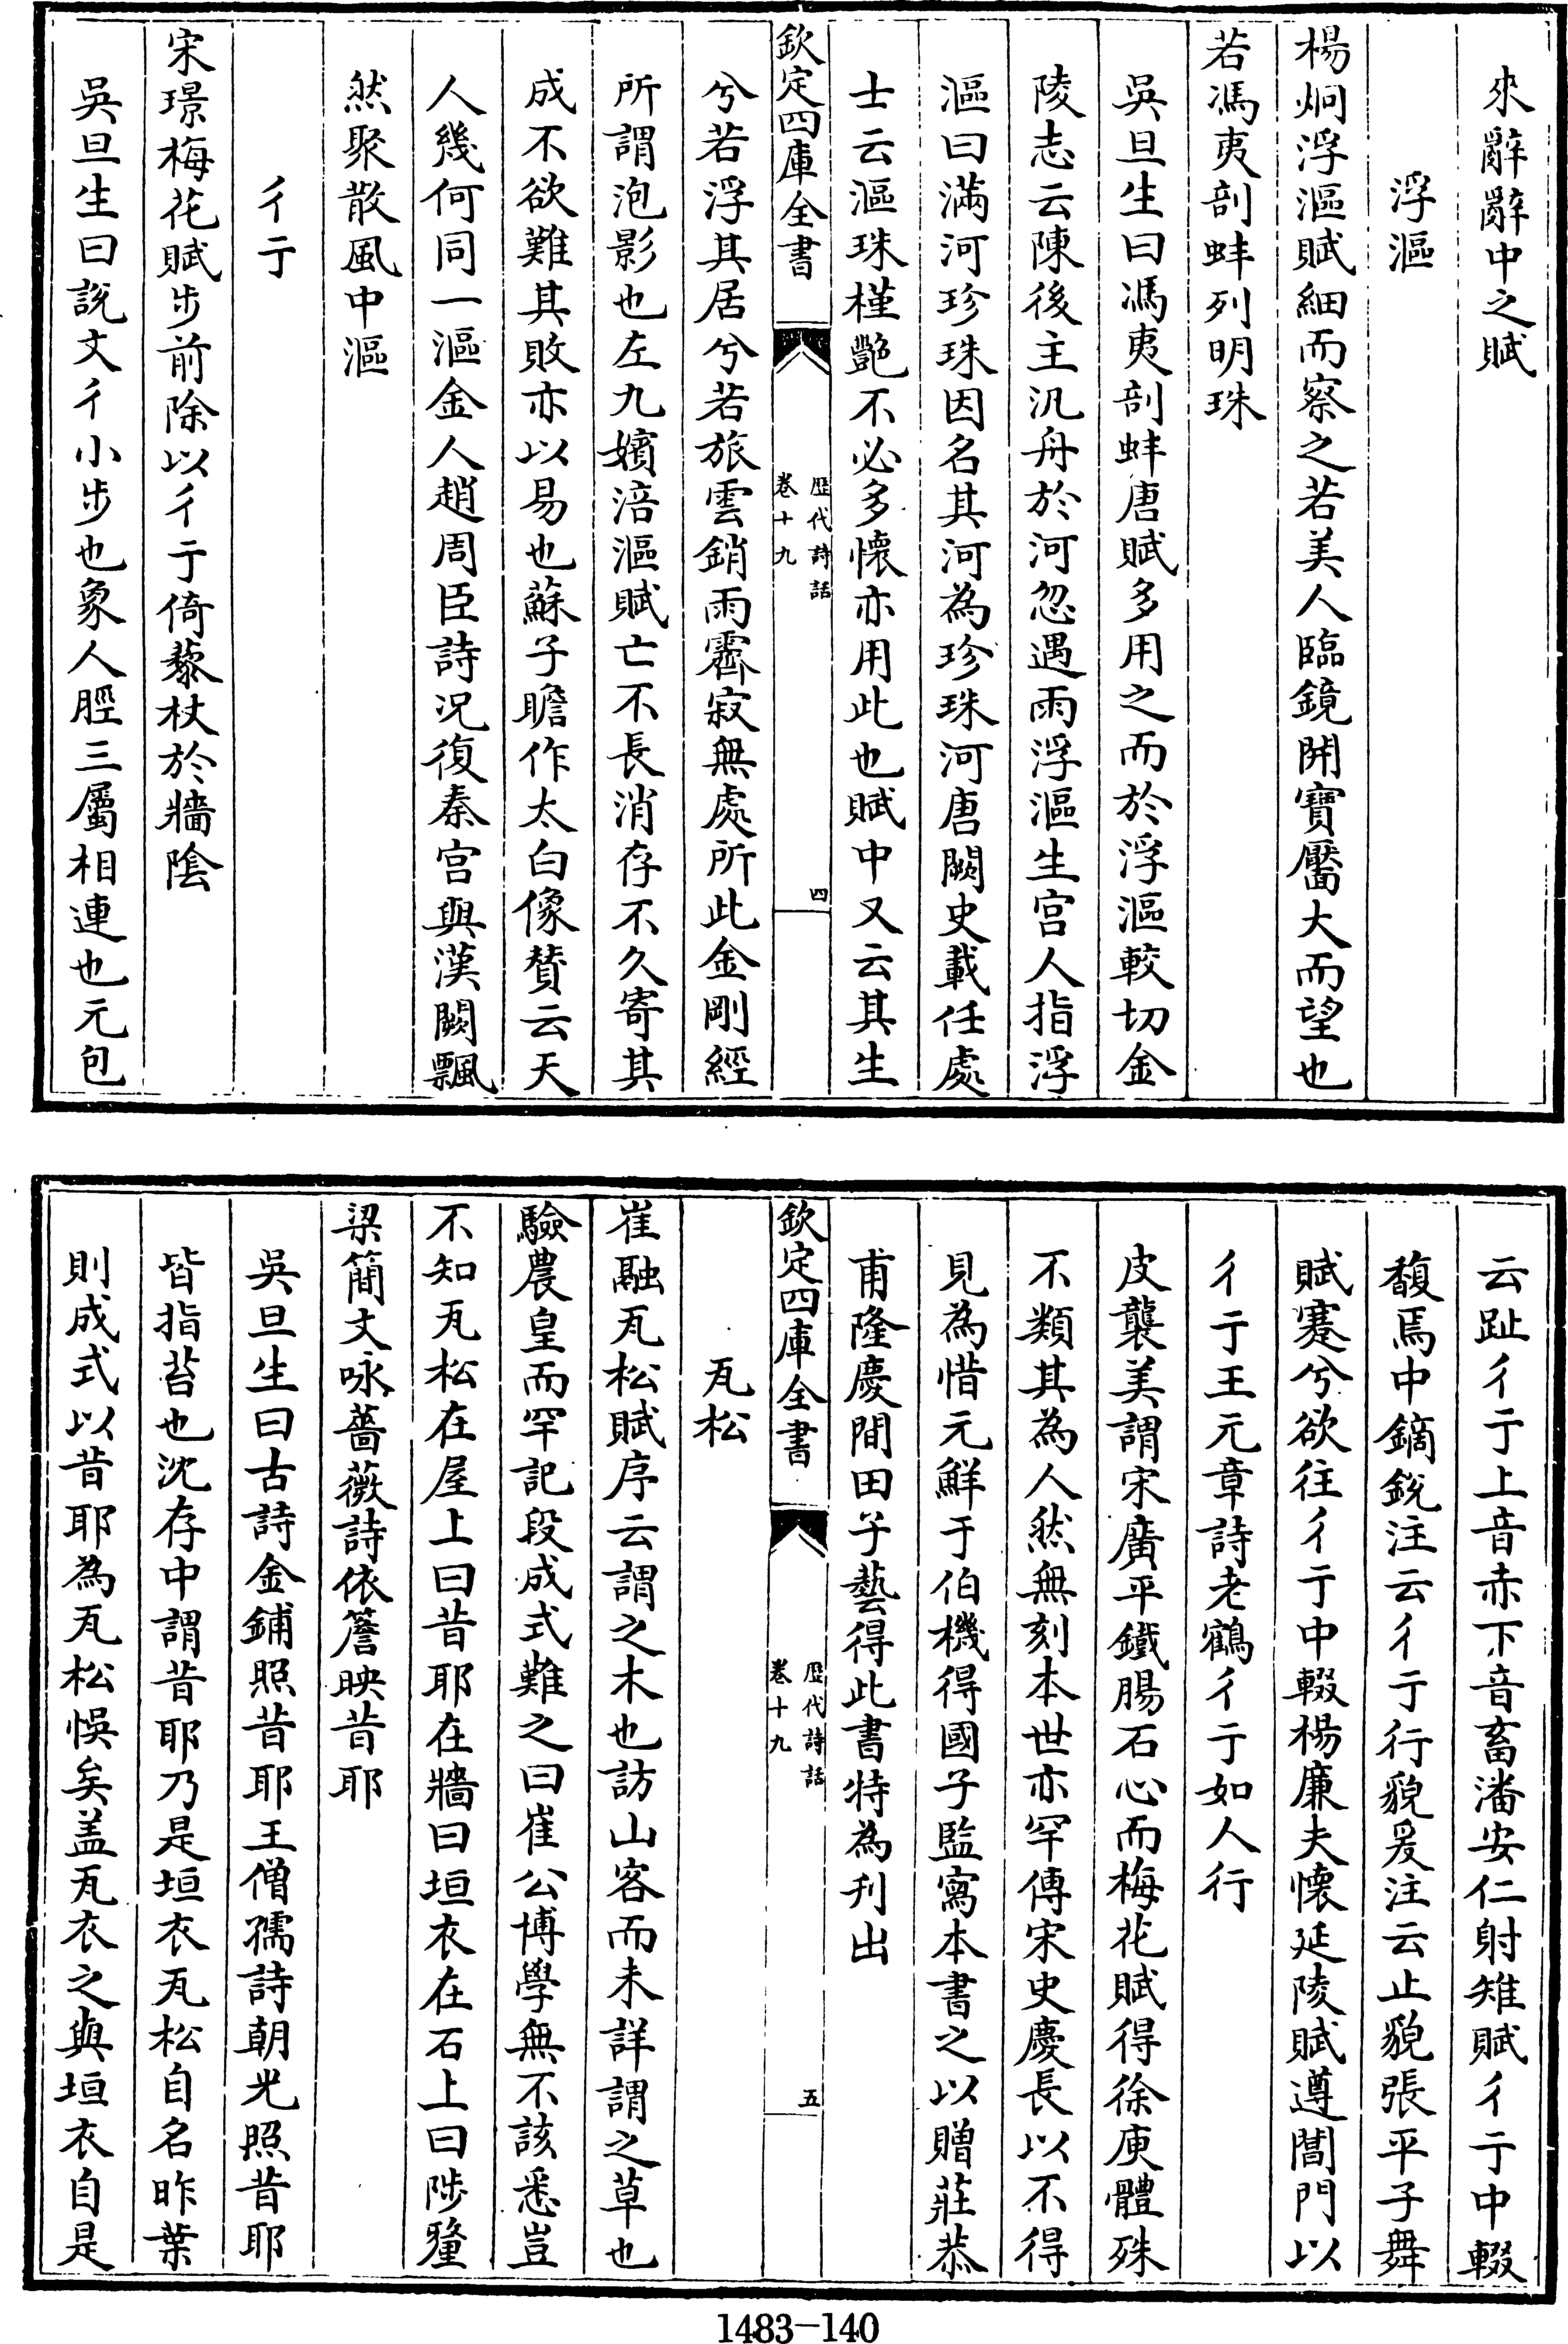 來辭辭中之賦
浮漚
楊炯浮漚賦細而察之若美人臨鏡開寶靨大而望也
若馮夷剖蚌列明珠
吳旦生曰馮夷剖蚌唐賦多用之而於浮漚較切金
陵志云陳後主汎舟於河忽遇雨浮漚生宫人指浮
漚曰滿河珍珠因名其河為珍珠河唐闕史載任處
士云漚珠槿艷不必多懷亦用此也賦中又云其生
欽定四庫全書
歴代詩話
卷十九
四
兮若浮其居兮若旅雲銷雨霽寂無處所此金剛經
所謂泡影也左九嬪涪漚賦亡不長消存不久寄其
成不欲難其敗亦以易也蘇子瞻作太白像贊云天
人幾何同一漚金人趙周臣詩况復秦宫與漢闕飄
然聚散風中漚
彳亍
宋璟梅花賦步前除以彳亍倚藜杖於牆陰
吳旦生曰說文彳小步也象人脛三屬相連也元包
云趾彳亍上音赤下音畜潘安仁射雉賦彳亍中輟
馥焉中鏑銳注云彳亍行貌爰注云止貌張平子舞
賦蹇兮欲往彳亍中輟楊廉夫懷延陵賦遵閶門以
彳亍王元章詩老鶴彳亍如人行
皮襲美謂宋廣平鐵腸石心而梅花賦得徐庾體殊
不類其為人然無刻本世亦罕傳宋史慶長以不得
見為惜元鮮于伯機得國子監寫本書之以贈莊恭
甫隆慶間田子藝得此書特為刋出
欽定四庫全書
歴代詩話
卷十九
五
瓦松
崔融瓦松賦序云謂之木也訪山客而未詳謂之草也
驗農皇而罕記段成式難之曰崔公博學無不該悉豈
不知瓦松在屋上曰昔耶在牆曰垣衣在石上曰陟釐
梁簡文咏薔薇詩依簷映昔耶
吳旦生曰古詩金鋪照昔耶王僧孺詩朝光照昔耶
皆指苔也沈存中謂昔耶乃是垣衣瓦松自名昨葉
則成式以昔耶為瓦松悞矣盖瓦衣之與垣衣自是
1483-140